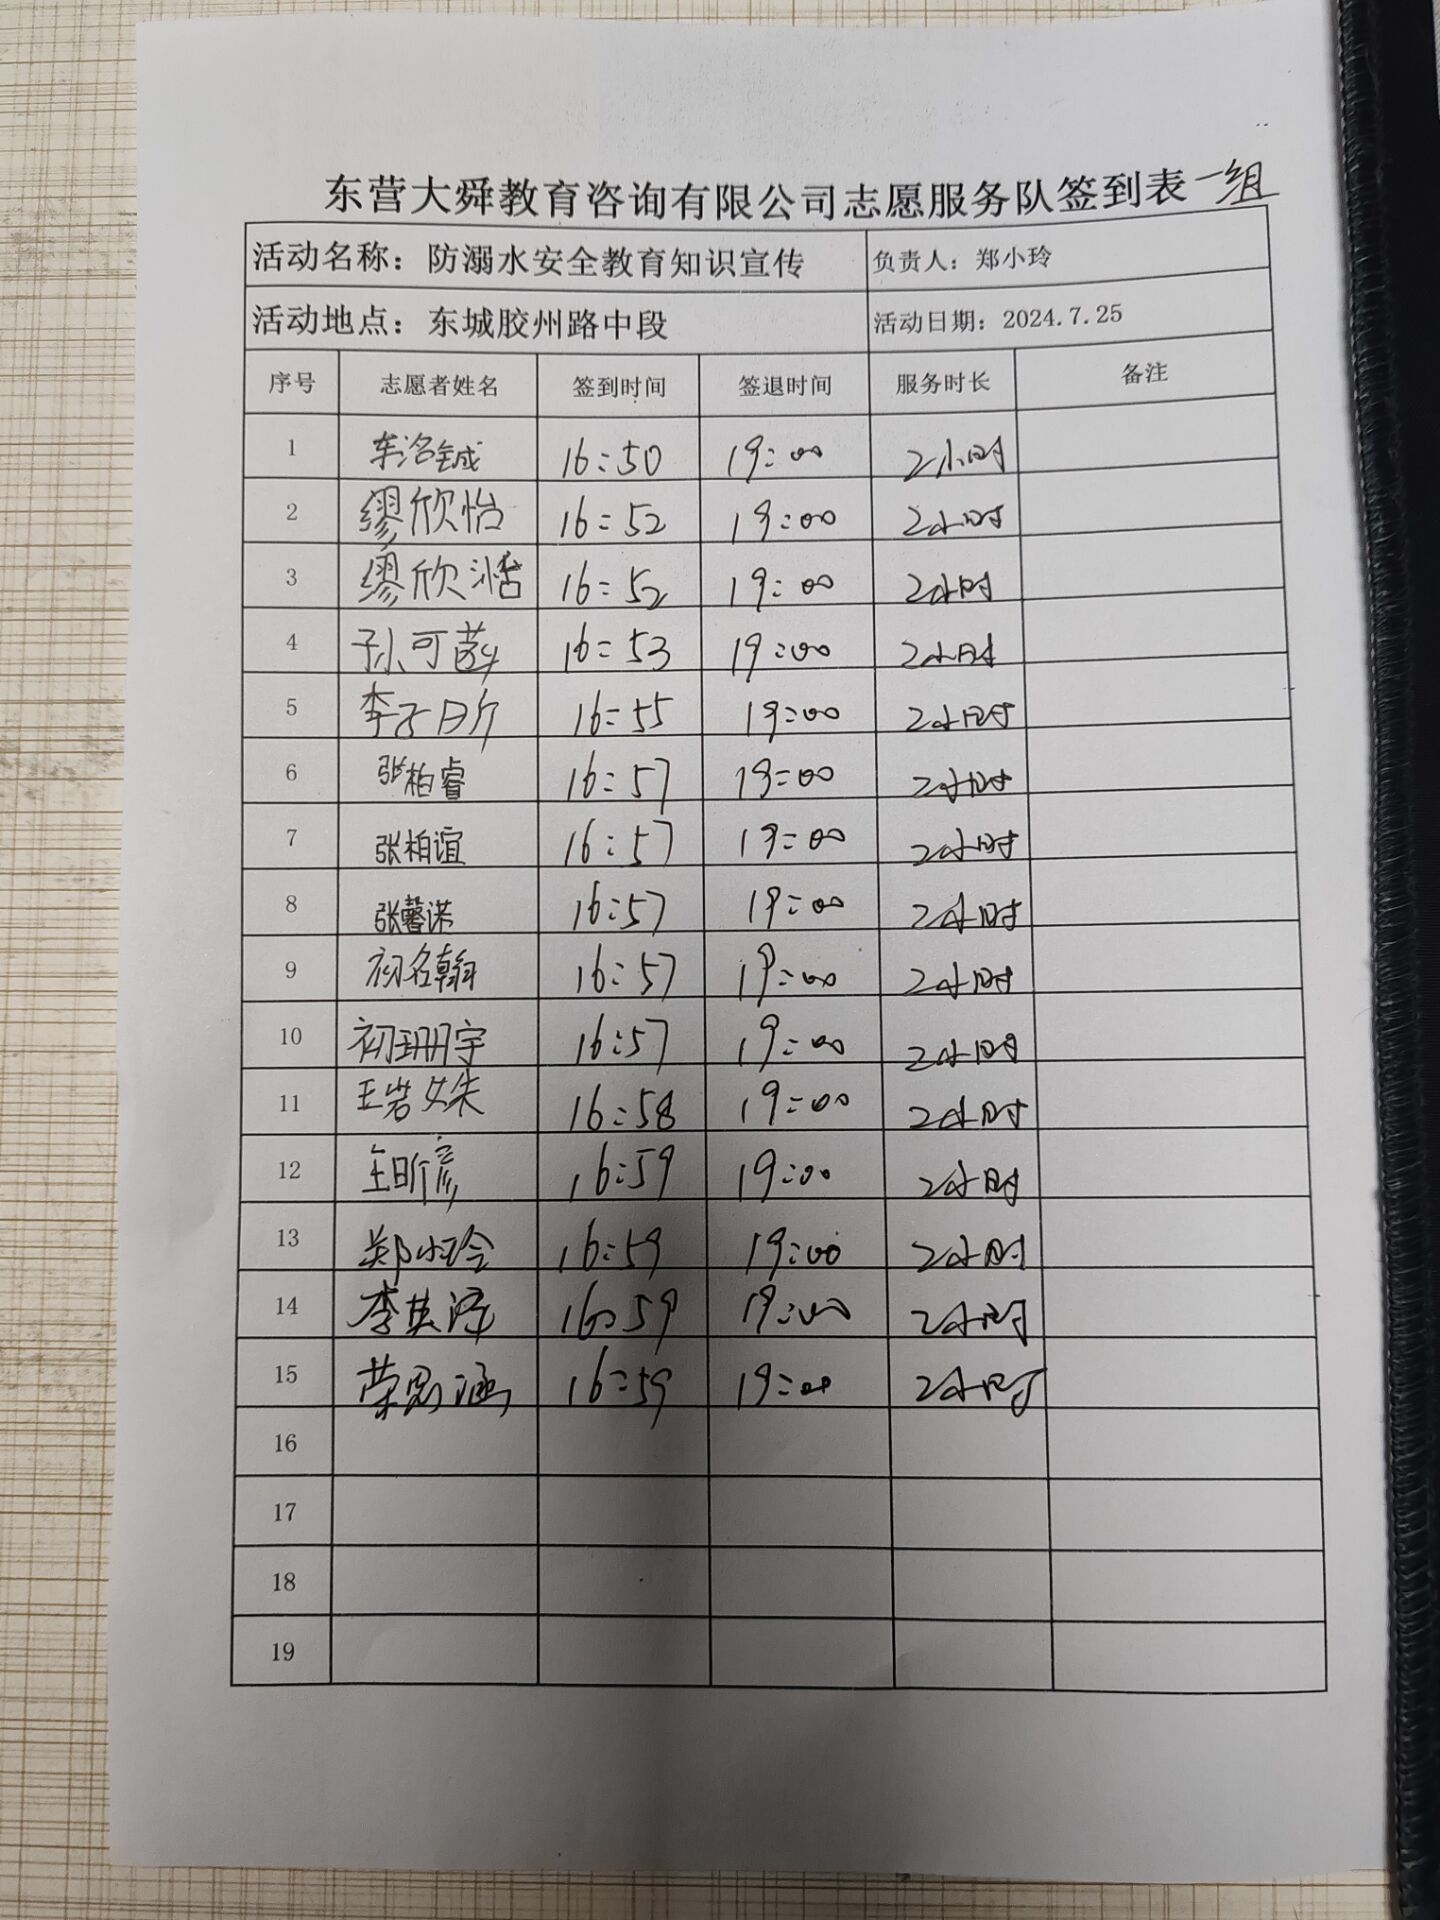 东营大舜教育咨询有限公司志愿服务队签到表 一组
活动名称：防溺水安全教育知识宣传 负责人：郑小玲
活动地点：东城胶州路中段 活动日期：2024.7.25
序号 志愿者姓名 签到时间 签退时间 服务时长 备注
1 车洺铖 16:50 19:00 2小时
2 缪欣怡 16:52 19:00 2小时
3 缪欣湉 16:52 19:00 2小时
4 孙可 16:53 19:00 2小时
5 李子昕 16:55 19:00 2小时
6 张柏睿 16:57 19:00 2小时
7 张柏谊 16:57 19:00 2小时
8 张馨诺 16:57 19:00 2小时
9 初名翰 16:57 19:00 2小时
10 初珊宇 16:57 19:00 2小时
11 王岩姝 16:58 19:00 2小时
12 王昕彦 16:59 19:00 2小时
13 郑小玲 16:59 19:00 2小时
14 李英泽 16:59 19:00 2小时
15 荣思涵 16:59 19:00 2小时
16
17
18
19